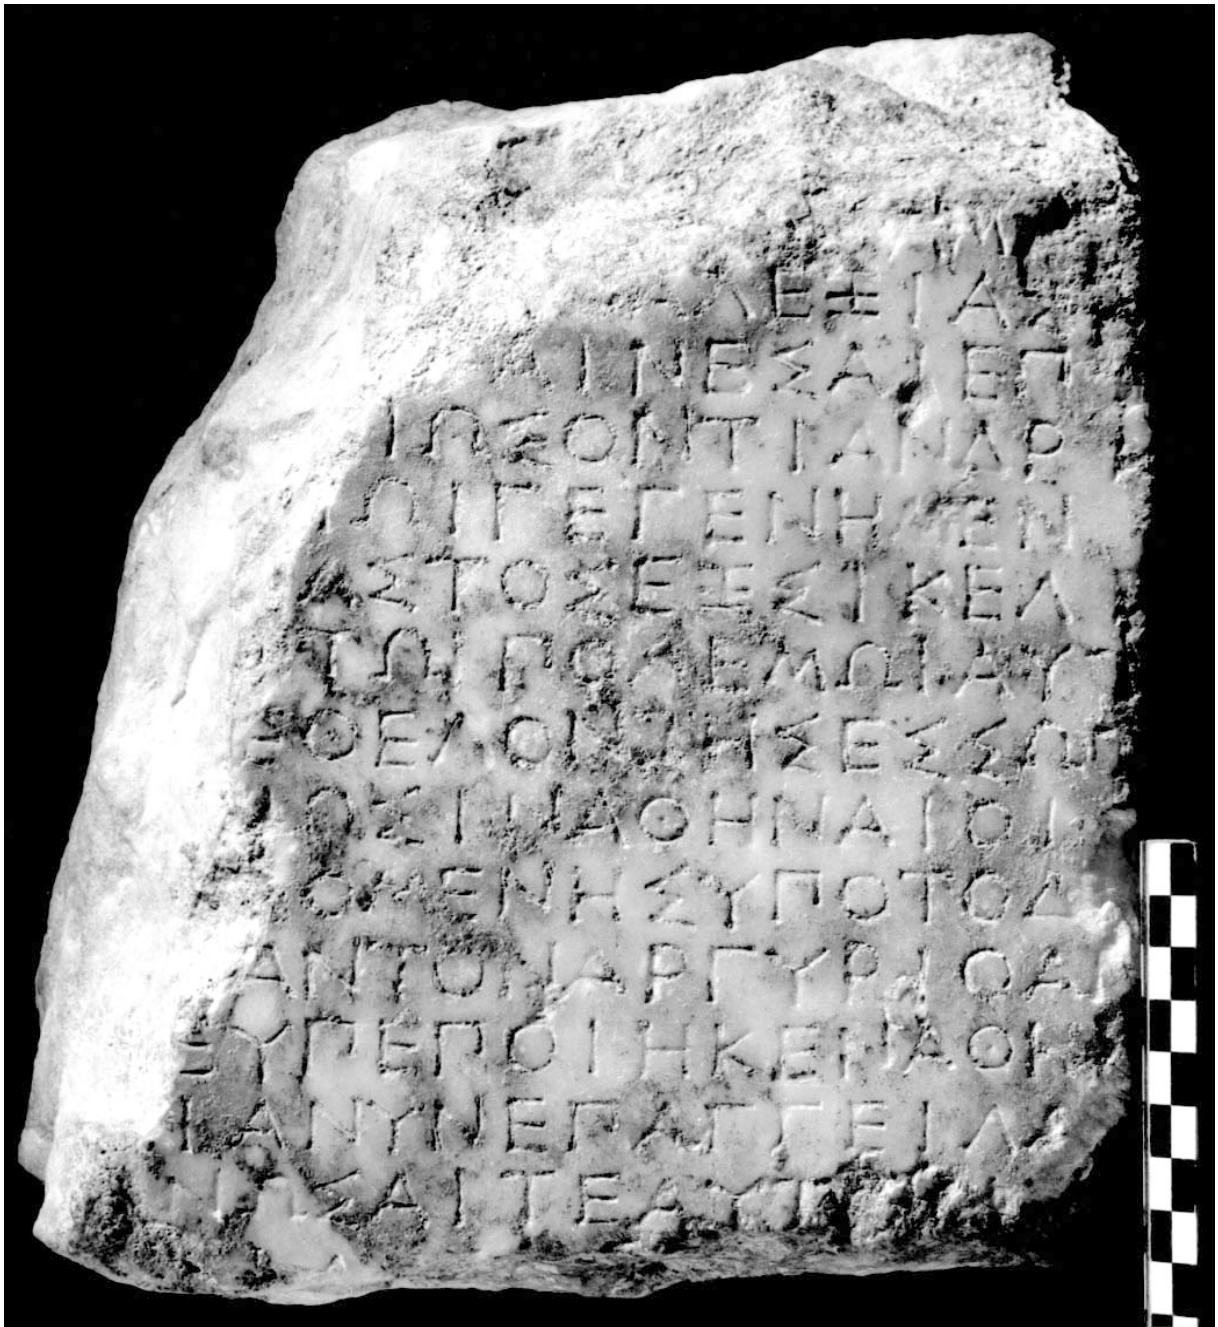 ΛΕΞΙΑΣ
ΑΙΝΕΣΑΙΕΠ
ΙΩΣΟΝΤΙΑΝΔΡ
ΩΙΓΕΓΕΝΗΜΕΝ
ΣΤΟΣΕΞΣΙΚΕΛ
ΤΩΙΠΟΛΕΜΩΙΑΥΤ
ΕΘΕΛΟΝΤΗΣΕΣΣΩΙ
ΩΣΙΝΑΘΗΝΑΙΟΙ
ΟΜΕΝΗΣΥΠΟΤΟΔ
ΑΝΤΟΝΑΡΓΥΡΙΟΑ
ΕΥΠΕΠΟΙΗΚΕΝΑΘΗ
ΙΑΝΥΝΕΠΑΓΓΕΙΛ
ΝΙΣΑΙΤΕΑΥΤ